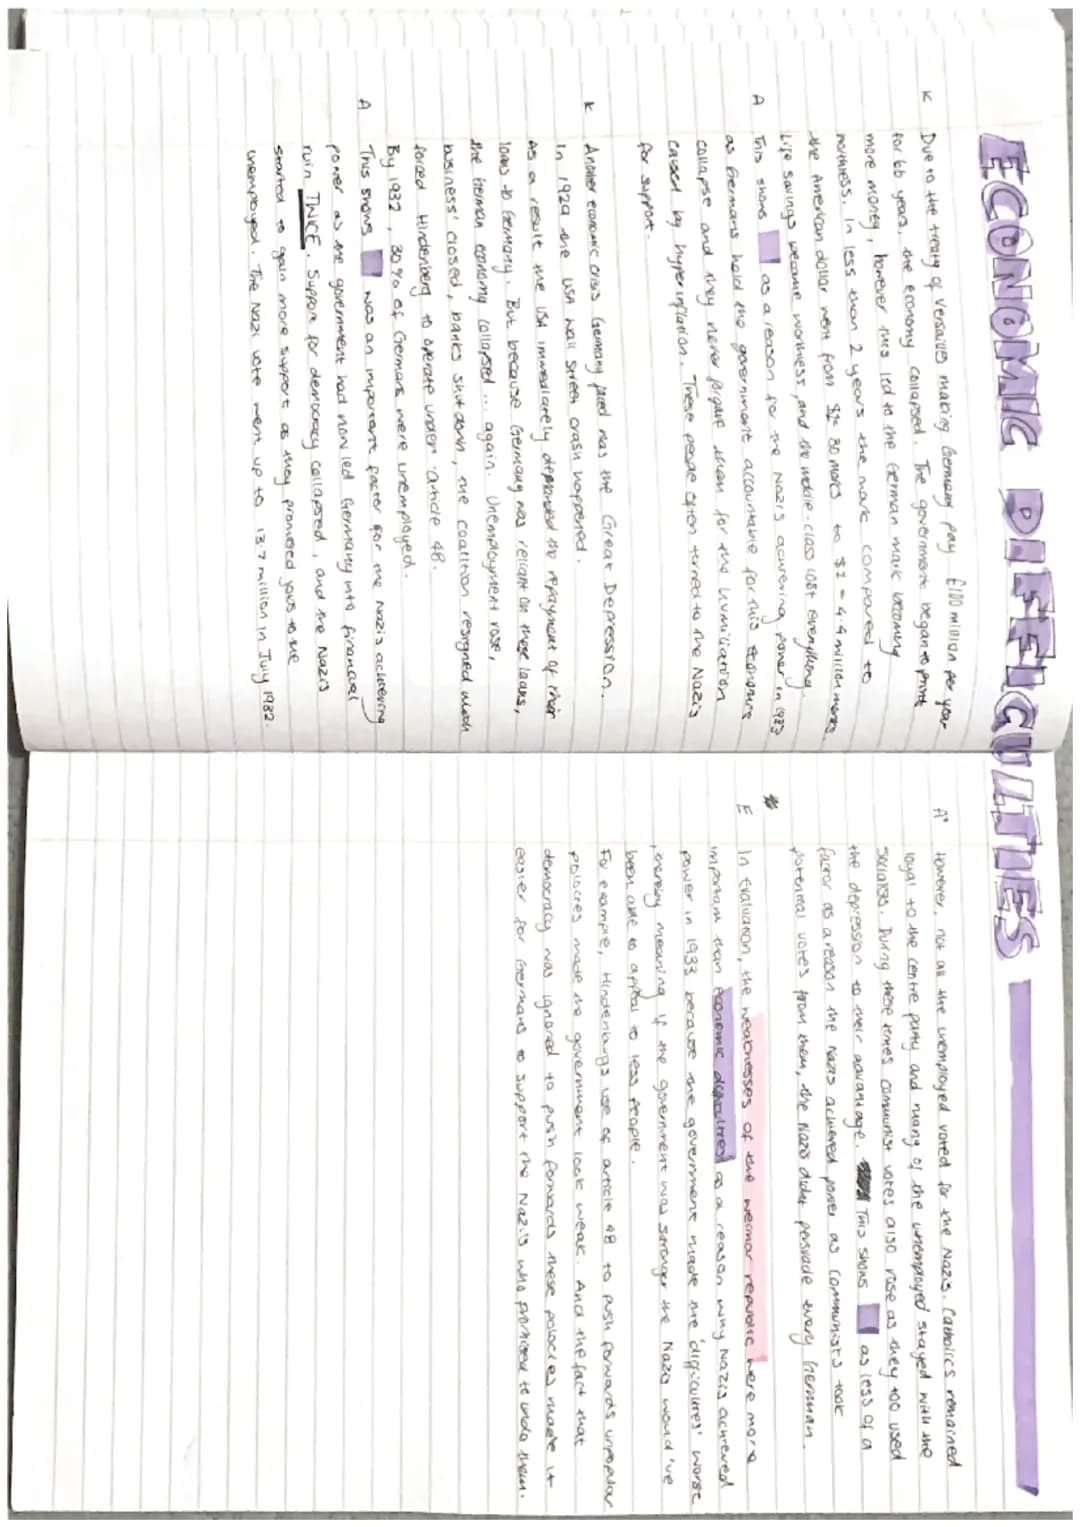 ECONOMIC DIFFICULTIES
K Due to the treaty of versailles making Germany pay £100 million per year
for 66 years, the economy collapsed. The government began to print
more money, however this led to the German mark becoming
worthless. In less than 2 years the mark compared to
the American dollar went from 80 marks to $1 = 4.4 million marks.
Life savings became worthless, and the middle-class lost everything.
A This shows as a reason for the Nazis achieving power in 1933
as Germans hold the government accountable for this economic
collapse and they never forgave them for the humiliation
caused by hyperinflation. These people often turned to the Nazis
for support.
K Another economic crisis Germany faced was the Great Depression.
In 1929 the USA wall street crash happened.
As a result the USA immediately demanded the repayment of their
loans to Germany. But because Germany was reliant on these loans,
the German economy collapsed... again. Unemployment rose,
business' closed, banks shut down, the coalition resigned which
forced Hindenberg to operate under 'article 48.
By 1932, 30% of Germans were unemployed.
A This shows was an important factor for the Nazis achieving
power as the government had now led Germany into financial
ruin TWICE. Support for democracy collapsed, and the Nazis
started to gain more support as they promised jobs to the
unemployed. The Nazi vote went up to 13.7 million in July 1932.
A+ However, not all the unemployed voted for the Nazis. Catholics remained
loyal to the centre party and many of the unemployed stayed with the
socialists. During these times communist votes also rose as they too used
the depression to their advantage. This shows as less of a
factor as a reason the Nazis achieved power as communists took
potential votes from them, the Nazis didnt persuade every German.
E In evaluation, the weaknesses of the weimar republic were more
important than economic difficulties as a reason why Nazis achieved
power in 1933 because the government made the 'difficulties' worse
, thereby meaning if the government was stronger the Nazis would've
been able to appeal to less people.
For example, Hindenburgs use of article 48 to push forwards unpopular
polocies made the government look weak. And the fact that
democracy was ignored to push forwards these polocies made it
easier for Germans to support the Nazis who promised to undo them.